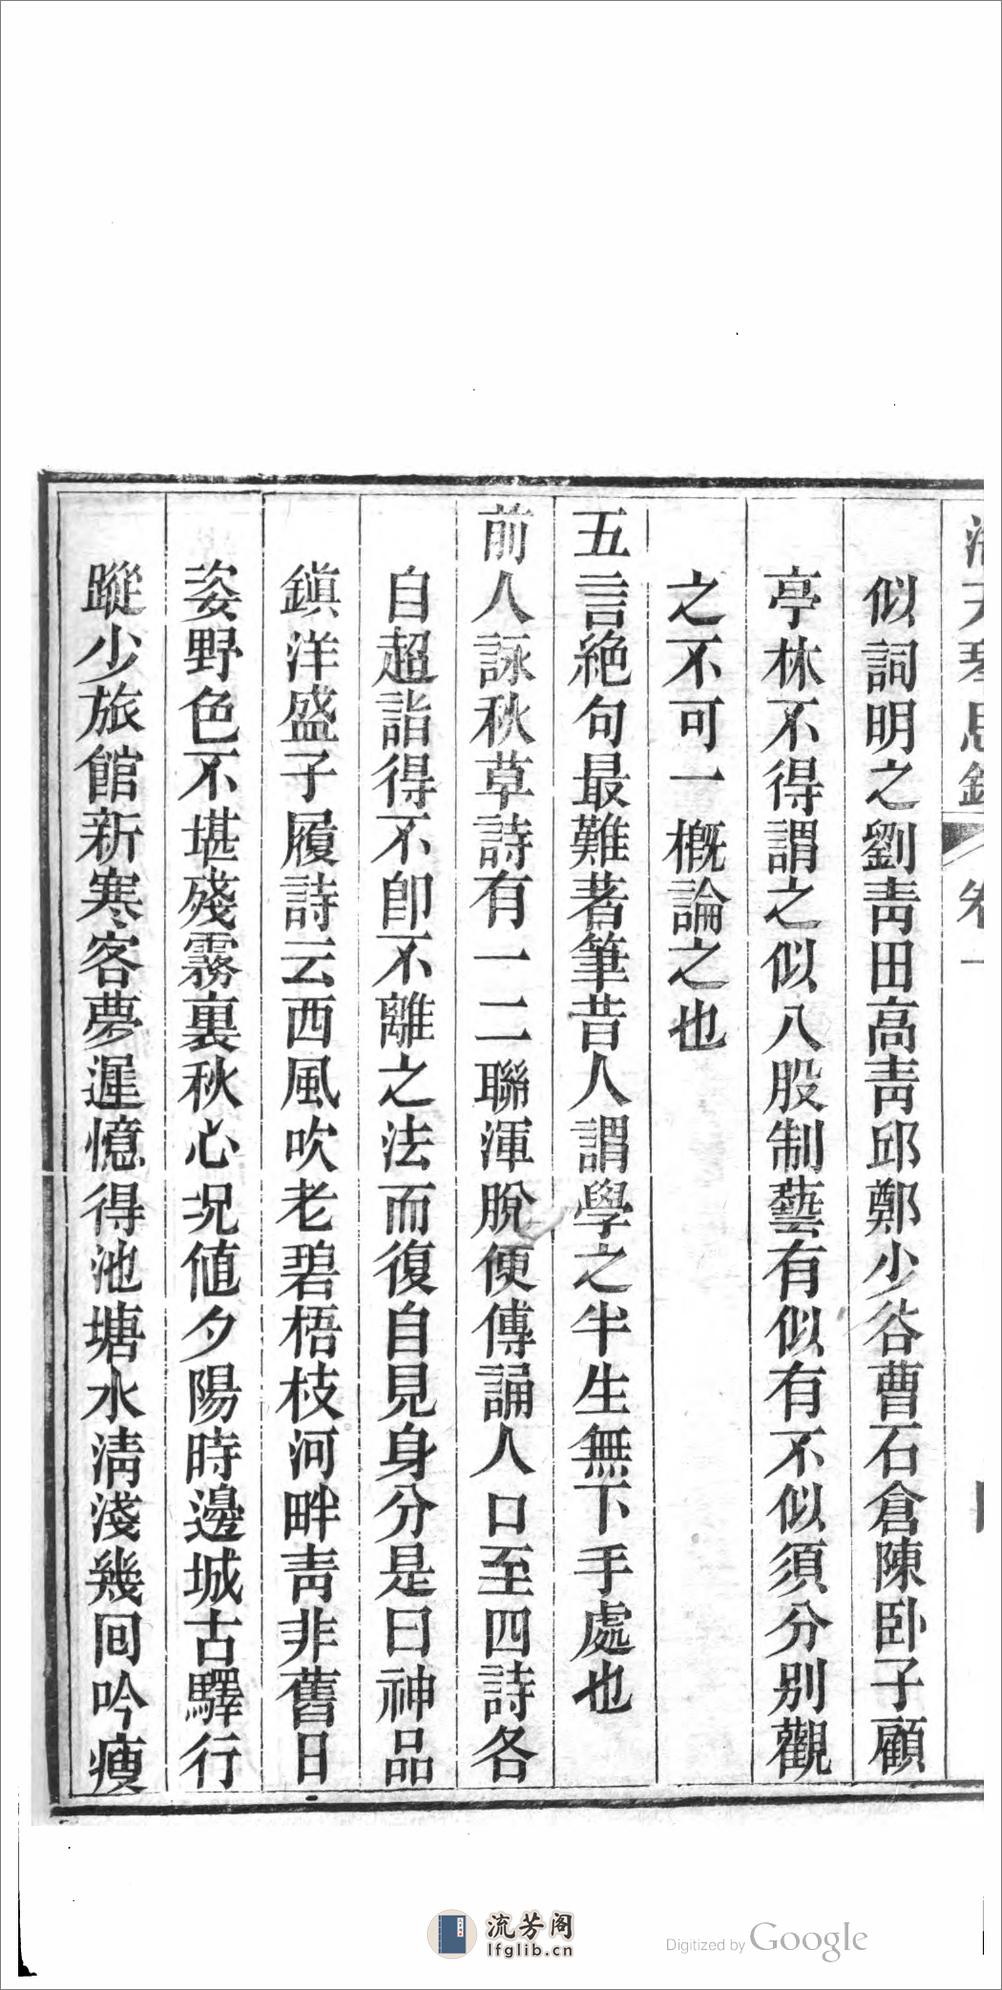 海天琴思錄 卷一
似詞明之劉靑田高靑邱鄭少谷曹石倉陳卧子顧
亭林不得謂之似八股制藝有似有不似須分别觀
之不可一概論之也
五言絶句最難著筆昔人謂學之半生無下手處也
前人詠秋草詩有一二聯渾脫便傳誦人口至四詩各
自超詣得不卽不離之法而復自見身分是曰神品
鎭洋盛子履詩云西風吹老碧梧枝河畔靑非舊日
姿野色不堪殘霧裏秋心况値夕陽時邊城古驛行
蹤少旅館新寒客夢遲憶得池塘水淸淺幾回吟瘦
流芳阁
lfglib.cn
Digitized by Google